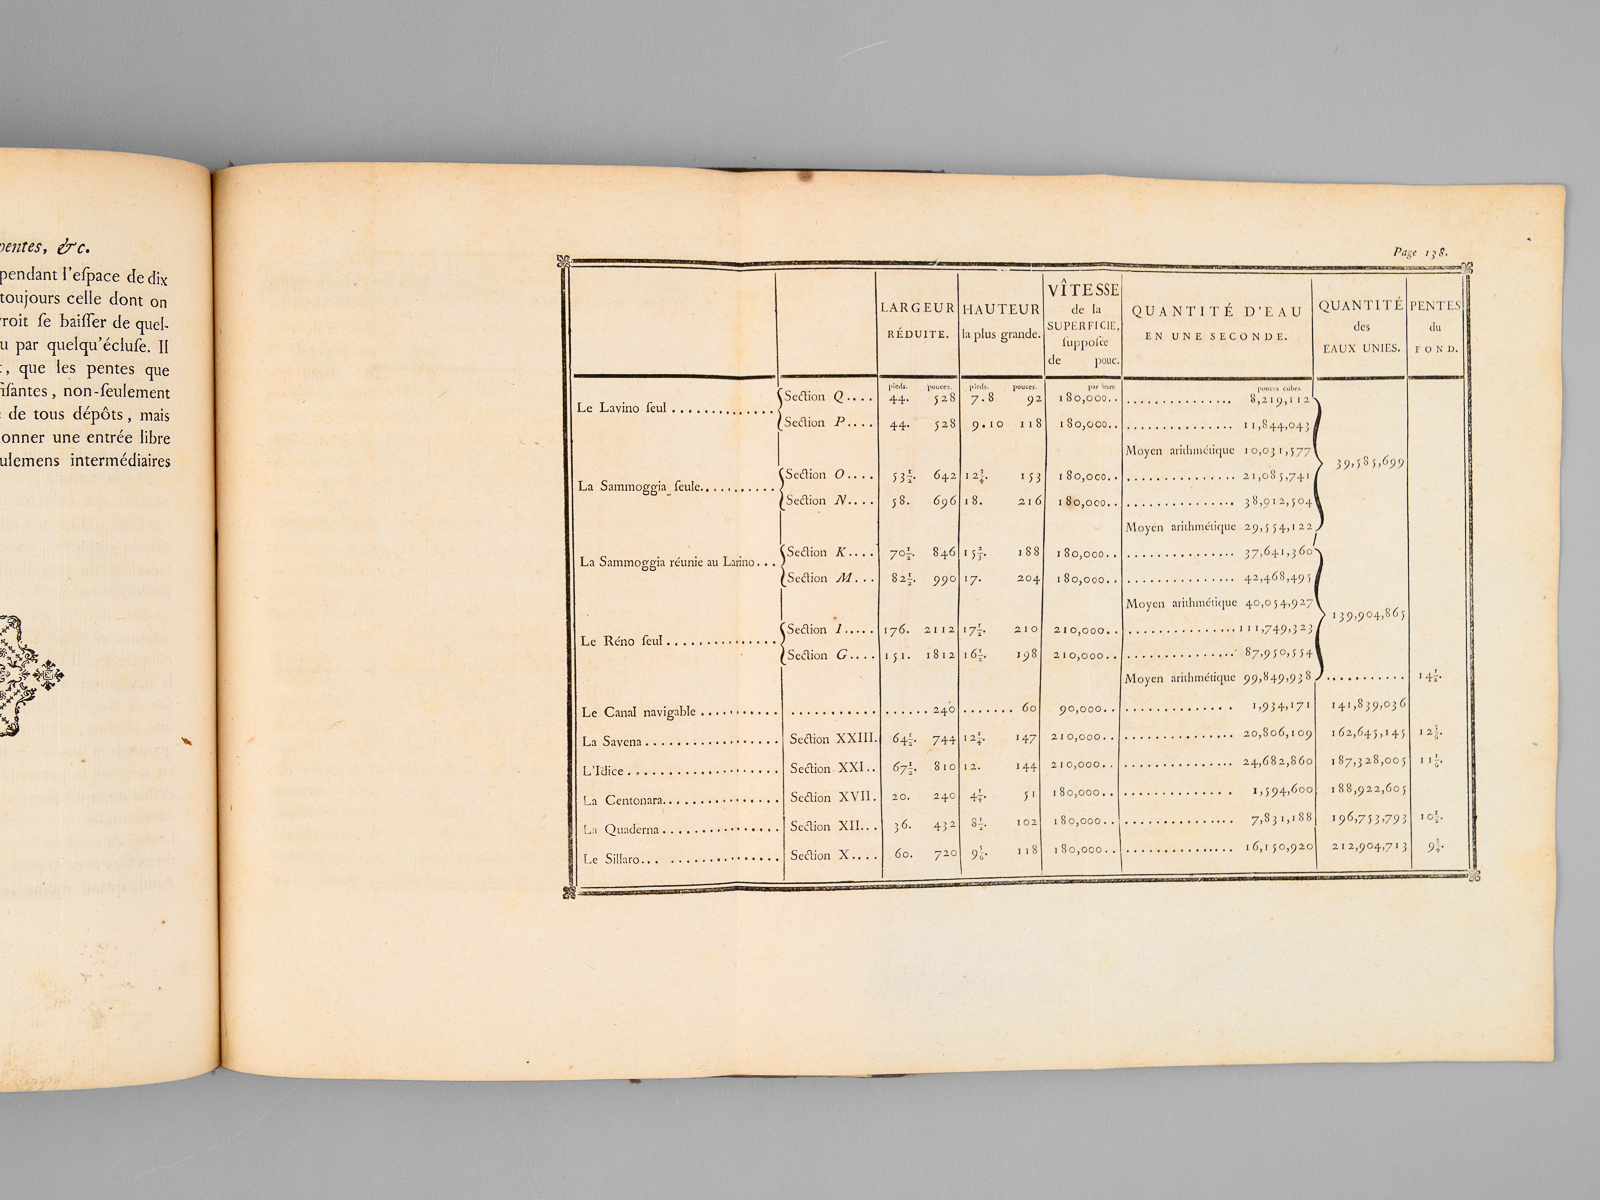 pentes, &c.
pendant l'eſpace de dix
toujours celle dont on
roit ſe baiſſer de quel-
u par quelqu'écluſe. Il
, que les pentes que
ſiſantes, non-ſeulement
de tous dépôts, mais
onner une entrée libre
ulemens intermédiaires
Page 138.
LARGEUR RÉDUITE. HAUTEUR la plus grande. VÎTESSE de la SUPERFICIE, ſuppoſée de pouc. QUANTITÉ D'EAU EN UNE SECONDE. QUANTITÉ des EAUX UNIES. PENTES du FOND.
pieds. pouces. pieds. pouces. par heure. pouces cubes.
Le Lavino ſeul ............. Section Q.... 44. 528 7.8 92 180,000.. ............... 8,219,112
Section P.... 44. 528 9.10 118 180,000.. ............... 11,844,043
Moyen arithmétique 10,031,577
39,585,699
La Sammoggia ſeule........... Section O.... 53½. 642 12¾. 153 180,000.. ............... 21,085,741
Section N.... 58. 696 18. 216 180,000.. ............... 38,012,504
Moyen arithmétique 29,554,122
La Sammoggia réunie au Larino... Section K.... 70½. 846 15⅔. 188 180,000.. ............... 37,641,360
Section M... 82½. 990 17. 204 180,000.. ............... 42,468,495
Moyen arithmétique 40,054,927
139,904,865
Le Réno ſeul............... Section I..... 176. 2112 17½. 210 210,000.. ...............111,749,323
Section G.... 151. 1812 16½. 198 210,000.. ............... 87,950,554
Moyen arithmétique 99,849,938 ........... 14½.
Le Canal navigable .......... ........... ...... 240 ....... 60 90,000.. .............. 1,934,171 141,839,036
La Savena.................. Section XXIII. 64½. 744 12¼. 147 210,000.. ............... 20,806,109 162,645,145
L'Idice.................... Section XXI.. 67½. 810 12. 144 210,000.. ............... 24,682,860 187,328,005
La Centonara............... Section XVII. 20. 240 4¼. 51 180,000.. .............. 1,594,600 188,922,605
La Quaderna................ Section XII... 36. 432 8½. 102 180,000.. .............. 7,831,188 196,753,793
Le Sillaro... ............... Section X.... 60. 720 9⅚. 118 180,000.. ............... 16,150,920 212,904,713